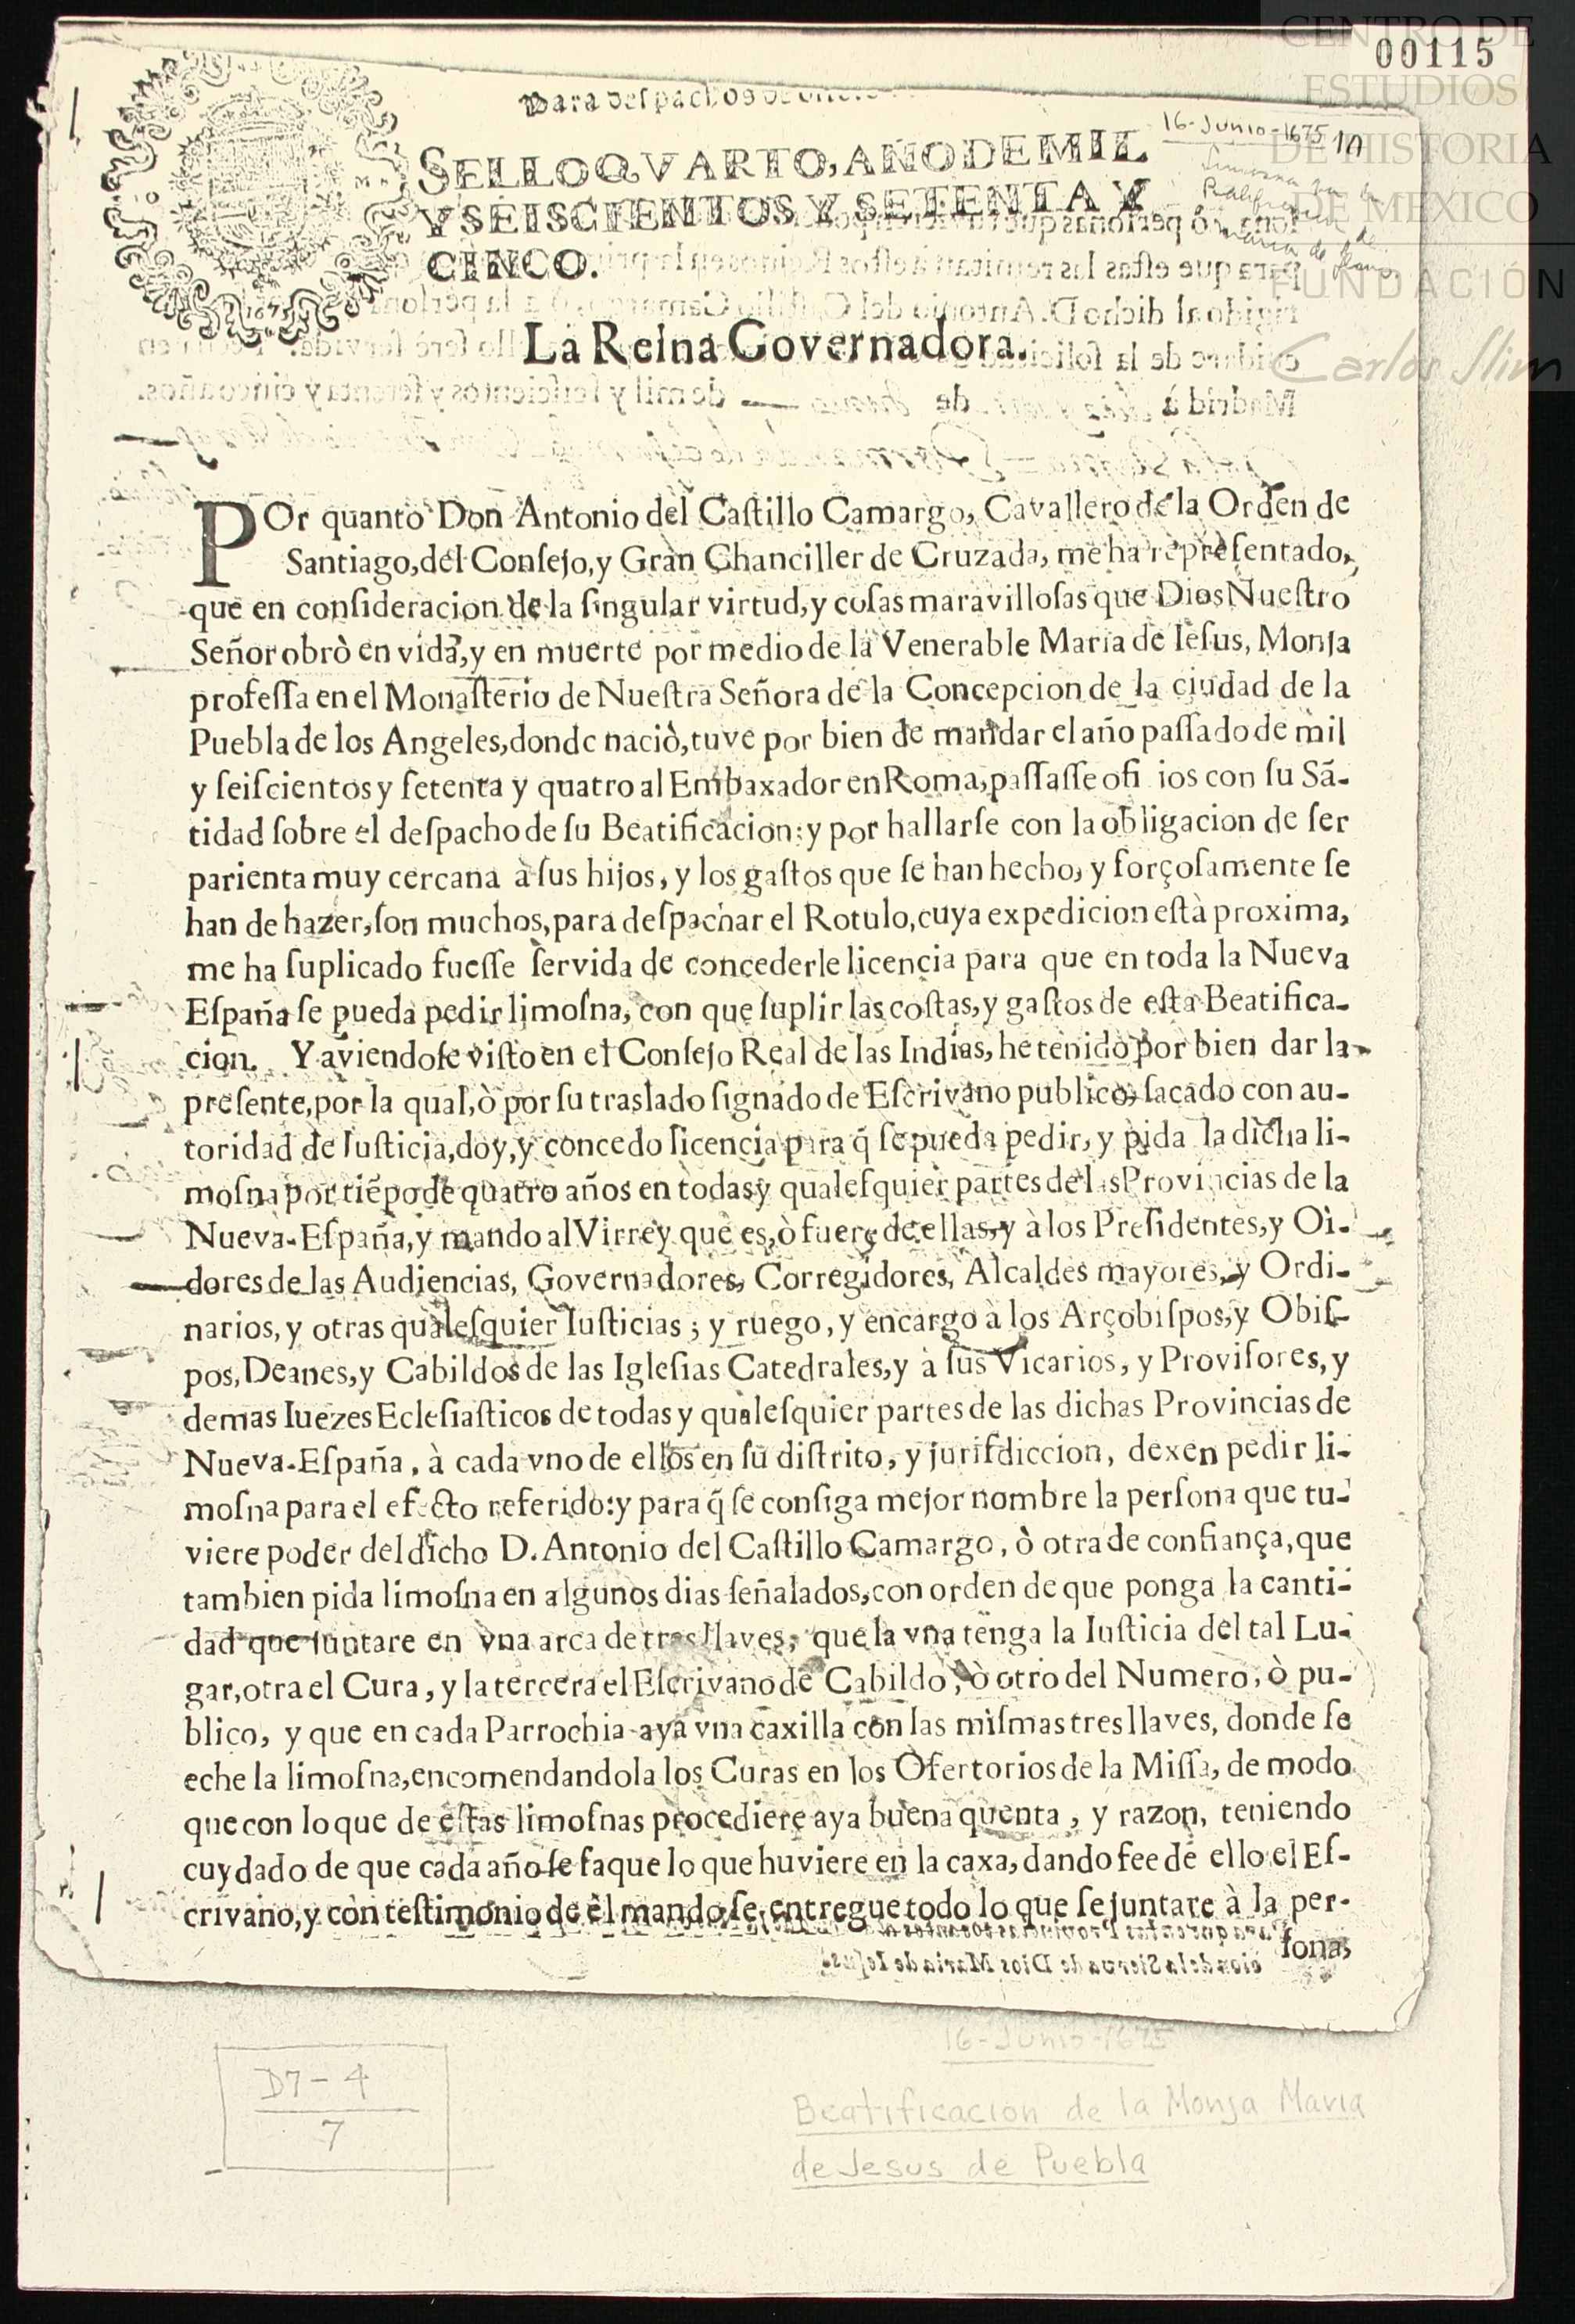 CENTRO DE
ESTUDIOS
DE HISTORIA
DE MEXICO
FUNDACIÓN
Carlos Slim
00115
Para despachos de
16-Junio-1675
SELLO QVARTO, AÑO DE MIL
Y SEISCIENTOS Y SETENTA Y
CINCO.
La Reina Governadora.
POr quanto Don Antonio del Caſtillo Camargo, Cavallero de la Orden de
Santiago, del Conſejo, y Gran Chanciller de Cruzada, me ha repreſentado,
que en conſideracion de la ſingular virtud, y coſas maravilloſas que Dios Nueſtro
Señor obrò en vida, y en muerte por medio de la Venerable Maria de Ieſus, Monja
profeſſa en el Monaſterio de Nueſtra Señora de la Concepcion de la ciudad de la
Puebla de los Angeles, donde naciò, tuve por bien de mandar el año paſſado de mil
y ſeiſcientos y ſetenta y quatro al Embaxador en Roma, paſſaſſe ofi ios con ſu Sã-
tidad ſobre el deſpacho de ſu Beatificacion: y por hallarſe con la obligacion de ſer
parienta muy cercana à ſus hijos, y los gaſtos que ſe han hecho, y forçoſamente ſe
han de hazer, ſon muchos, para deſpachar el Rotulo, cuya expedicion eſtà proxima,
me ha ſuplicado fueſſe ſervida de concederle licencia para que en toda la Nueva
Eſpaña ſe pueda pedir limoſna, con que ſuplir las coſtas, y gaſtos de eſta Beatifica-
cion. Y aviendoſe viſto en el Conſejo Real de las Indias, he tenido por bien dar la
preſente, por la qual, ò por ſu traslado ſignado de Eſcrivano publico, ſacado con au-
toridad de Iuſticia, doy, y concedo licencia para q̃ ſe pueda pedir, y pida la dicha li-
moſna por tiẽpo de quatro años en todas y qualeſquier partes de las Provincias de la
Nueva-Eſpaña, y mando al Virrey que es, ò fuere de ellas, y à los Preſidentes, y Oì-
dores de las Audiencias, Governadores, Corregidores, Alcaldes mayores, y Ordi-
narios, y otras qualeſquier Iuſticias; y ruego, y encargo à los Arçobiſpos, y Obiſ-
pos, Deanes, y Cabildos de las Igleſias Catedrales, y à ſus Vicarios, y Proviſores, y
demas Iuezes Ecleſiaſticos de todas y qualeſquier partes de las dichas Provincias de
Nueva-Eſpaña, à cada vno de ellos en ſu diſtrito, y juriſdiccion, dexen pedir li-
moſna para el efecto referido: y para q̃ ſe conſiga mejor nombre la perſona que tu-
viere poder del dicho D. Antonio del Caſtillo Camargo, ò otra de confiança, que
tambien pida limoſna en algunos dias ſeñalados, con orden de que ponga la canti-
dad que juntare en vna arca de tres llaves, que la vna tenga la Iuſticia del tal Lu-
gar, otra el Cura, y la tercera el Eſcrivano de Cabildo, ò otro del Numero, ò pu-
blico, y que en cada Parrochia aya vna caxilla con las miſmas tres llaves, donde ſe
eche la limoſna, encomendandola los Curas en los Ofertorios de la Miſſa, de modo
que con lo que de eſtas limoſnas procediere aya buena quenta, y razon, teniendo
cuydado de que cada año ſe ſaque lo que huviere en la caxa, dando fee de ello el Eſ-
crivano, y con teſtimonio de èl mando ſe entregue todo lo que ſe juntare à la per-
ſona,
16-Junio-1675
Beatificacion de la Monja Maria
de Jesus de Puebla
D7-4
7